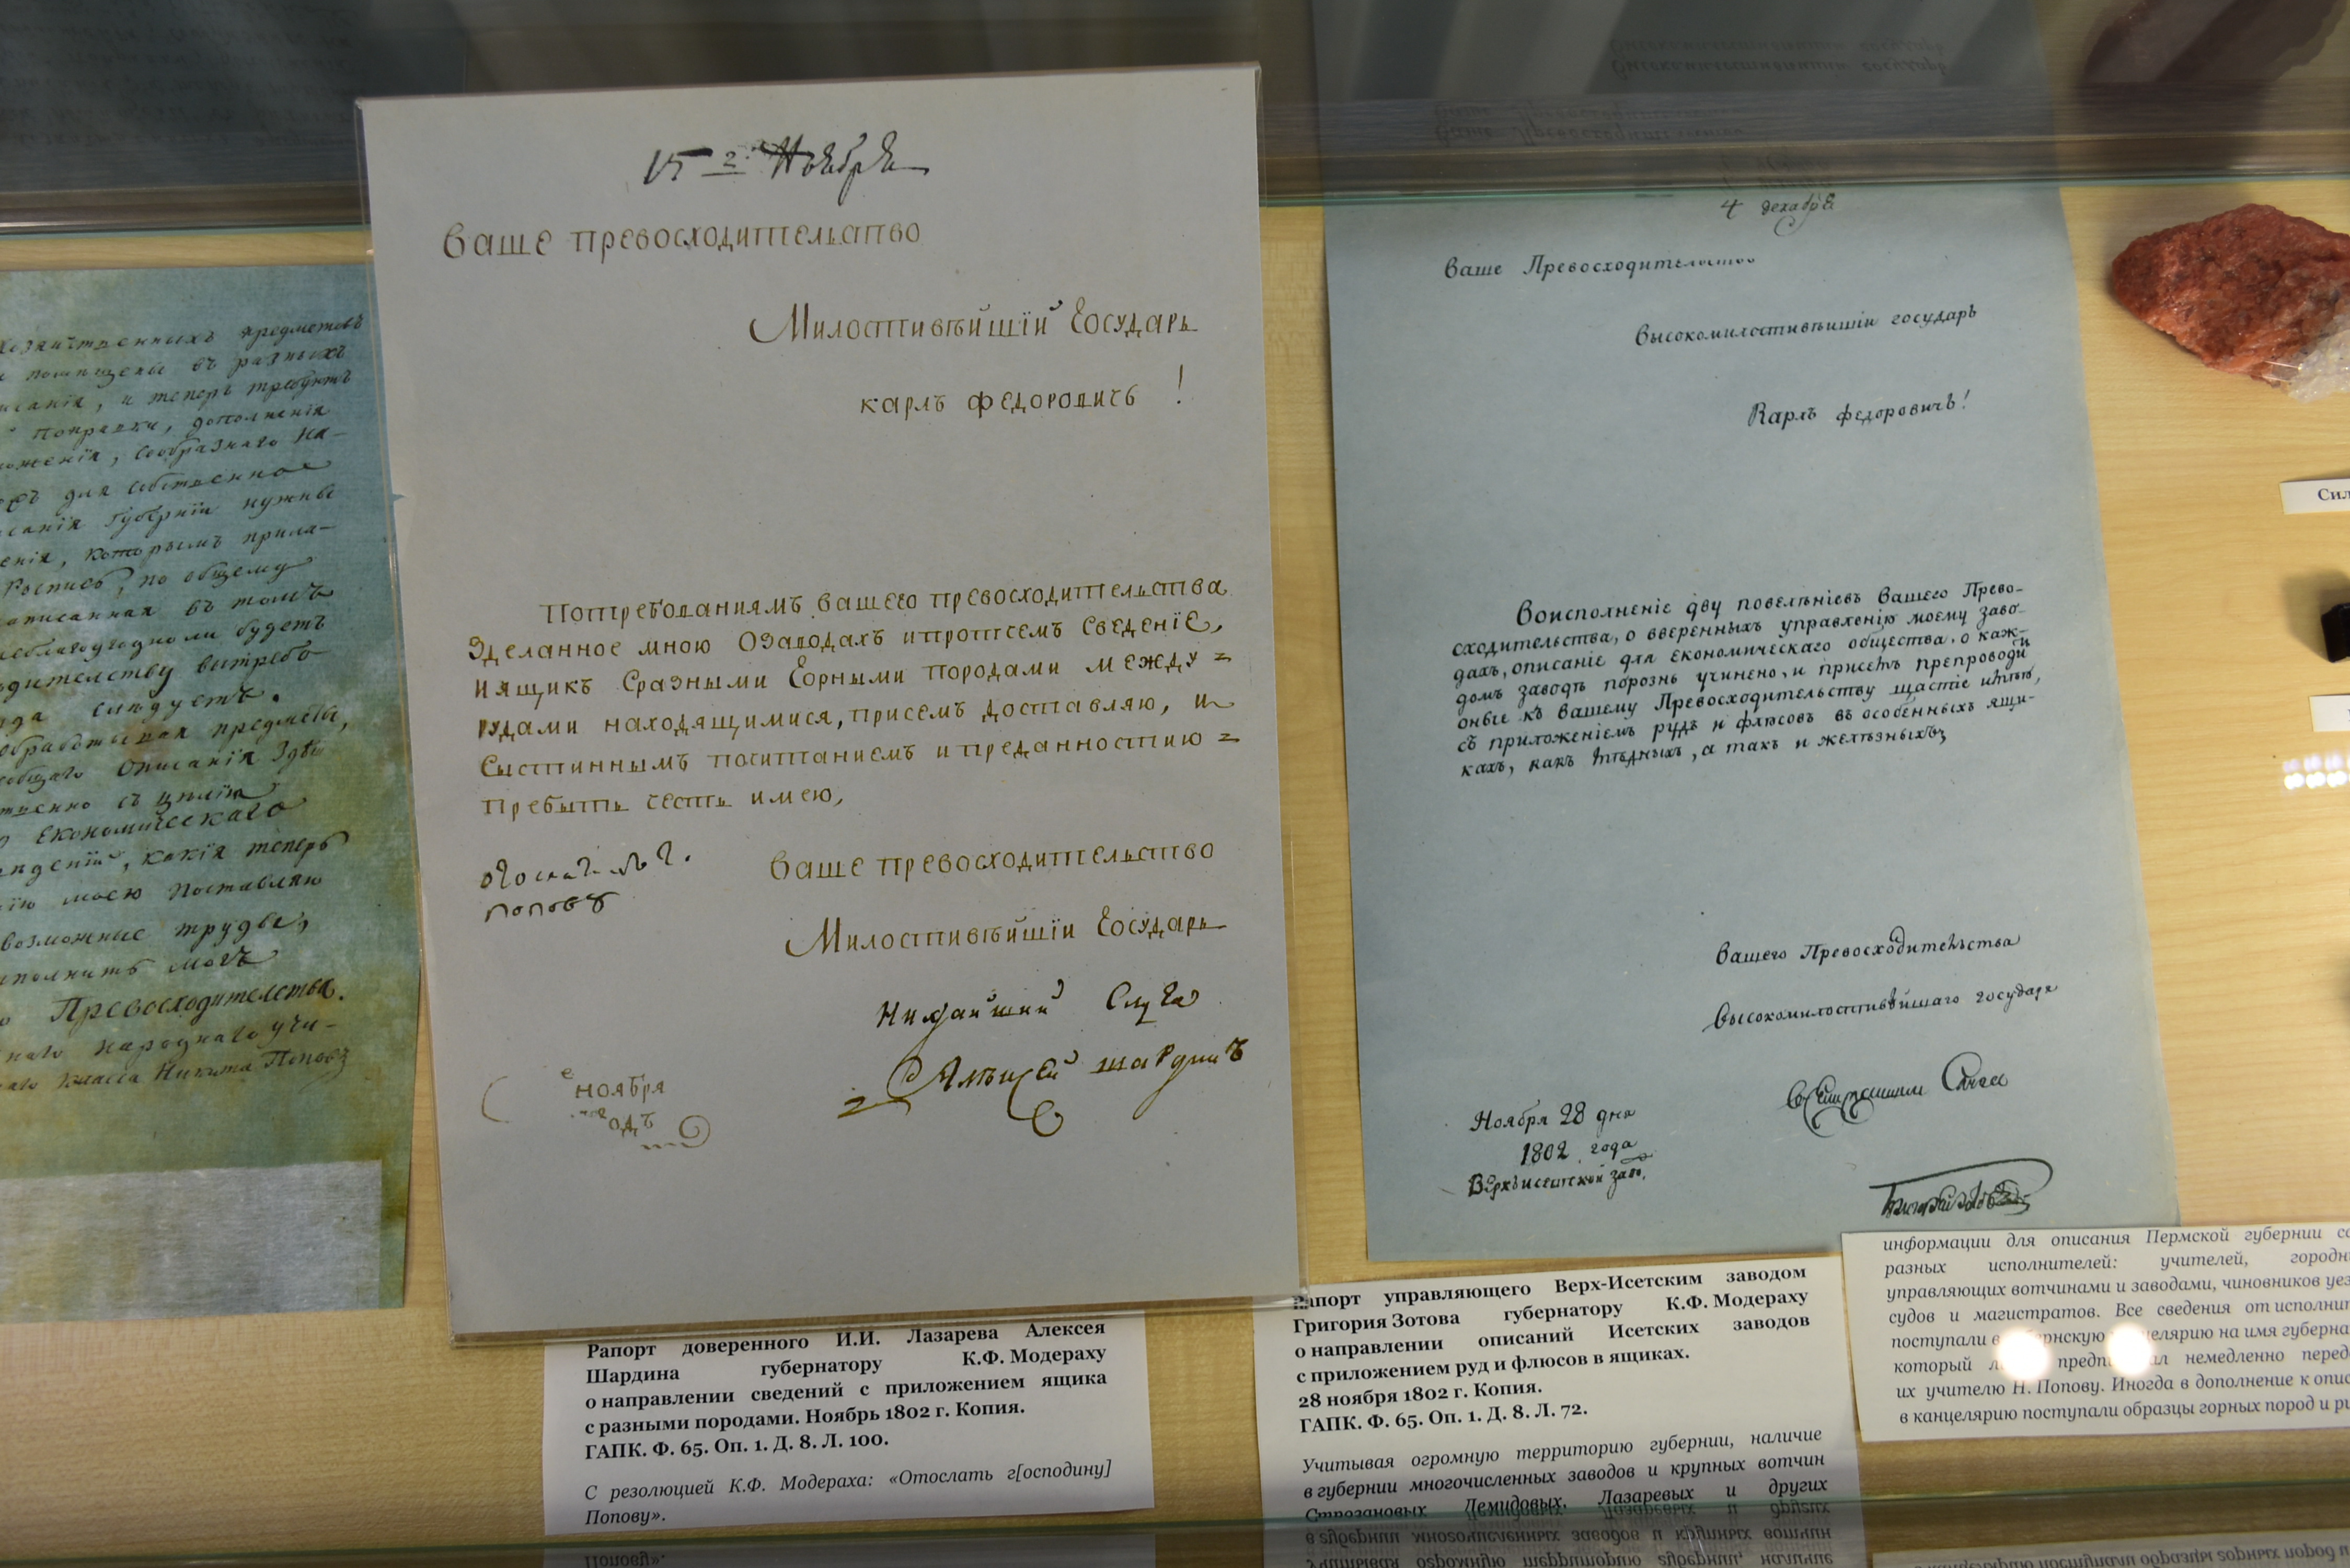 хозяйственныхъ предметовъ
помѣщены въ разныхъ
исанiя, и теперь требуютъ
поправки, дополненiя
оженiя, сообразнаго на-
для собственно
санiя Губернiи нужны
енiя, которымъ прила-
Роспись, по общему
написанная въ томъ
неблагоугодно ли будетъ
одительству вытребо-
да слѣдуетъ.
обработывая предметы,
общаго Описанiя Здѣ
ственно съ цѣлiю
Економическаго
какiя теперь
iю моею поставляю
возможные труды,
исполнить могъ
Превосходительства.
наго народнаго учи-
класса Никита Поповъ
15 г. Ноября
Ваше превосходительство
Милостивѣйшiй Государь
карлъ федоровичь !
Потребованиямъ вашего превосходительства
Зделанное мною Озаводахъ ипротчемъ Сведенiе,
иящикъ Сразными Горными породами между =
рудами находящимися, присемъ доставляю, и
Сыстиннымъ почитаниемъ ипреданностию =
пребыть честь имею,
попову
Ваше превосходительство
Милостивѣйшiи Государь
Нижайший Слуга
Алѣксѣй шардинъ
ноября
одъ
4 декабря
Ваше Превосходительство
Высокомилостивѣишiи государь
Карлъ федоровичъ!
Воисполненiе дву повелѣнiевъ Вашего Прево-
сходительства, о вверенныхъ управленiю моему заво-
дахъ, описанiе для Економическаго общества, о каж-
домъ заводѣ порознь учинено, и присемъ препроводи
оные къ Вашему Превосходительству щастiе имѣю,
съ приложенiемъ рудъ и флюсовъ въ особенныхъ ящи-
кахъ, какъ мѣдныхъ, а такъ и желѣзныхъ;
Вашего Превосходительства
Высокомилостивѣйшаго государя
Ноября 28 дня
1802 года
Верхъисетской заво.
Сил
Рапорт доверенного И.И. Лазарева Алексея
Шардина губернатору К.Ф. Модераху
о направлении сведений с приложением ящика
с разными породами. Ноябрь 1802 г. Копия.
ГАПК. Ф. 65. Оп. 1. Д. 8. Л. 100.
С резолюцией К.Ф. Модераха: «Отослать г[осподину]
Попову».
Рапорт управляющего Верх-Исетским заводом
Григория Зотова губернатору К.Ф. Модераху
о направлении описаний Исетских заводов
с приложением руд и флюсов в ящиках.
28 ноября 1802 г. Копия.
ГАПК. Ф. 65. Оп. 1. Д. 8. Л. 72.
Учитывая огромную территорию губернии, наличие
в губернии многочисленных заводов и крупных вотчин
Строгановых, Демидовых, Лазаревых и других
информации для описания Пермской губернии со
разных исполнителей: учителей, городн
управляющих вотчинами и заводами, чиновников уез
судов и магистратов. Все сведения от исполнит
поступали в канцелярию на имя губерна
который немедленно перед
их учителю Н. Попову. Иногда в дополнение к опис
в канцелярию поступали образцы горных пород и р